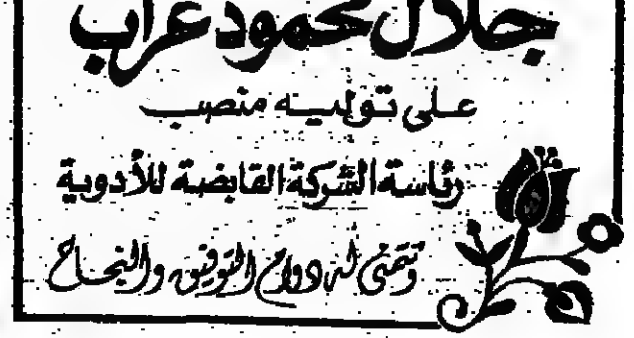 جلال محمود غراب
على توليه منصب
رئاسة الشركة القابضة للأدوية
وتتمنى له دوام التوفيق والنجاح